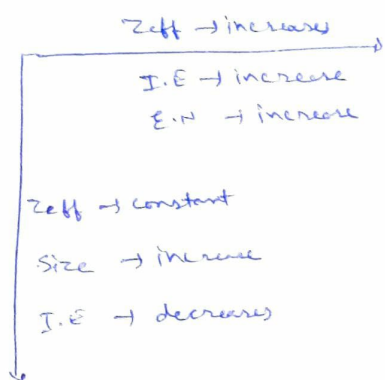 Zeff → increases
I.E → increase
E.N → increase
Zeff → constant
Size → increase
I.E → decreases